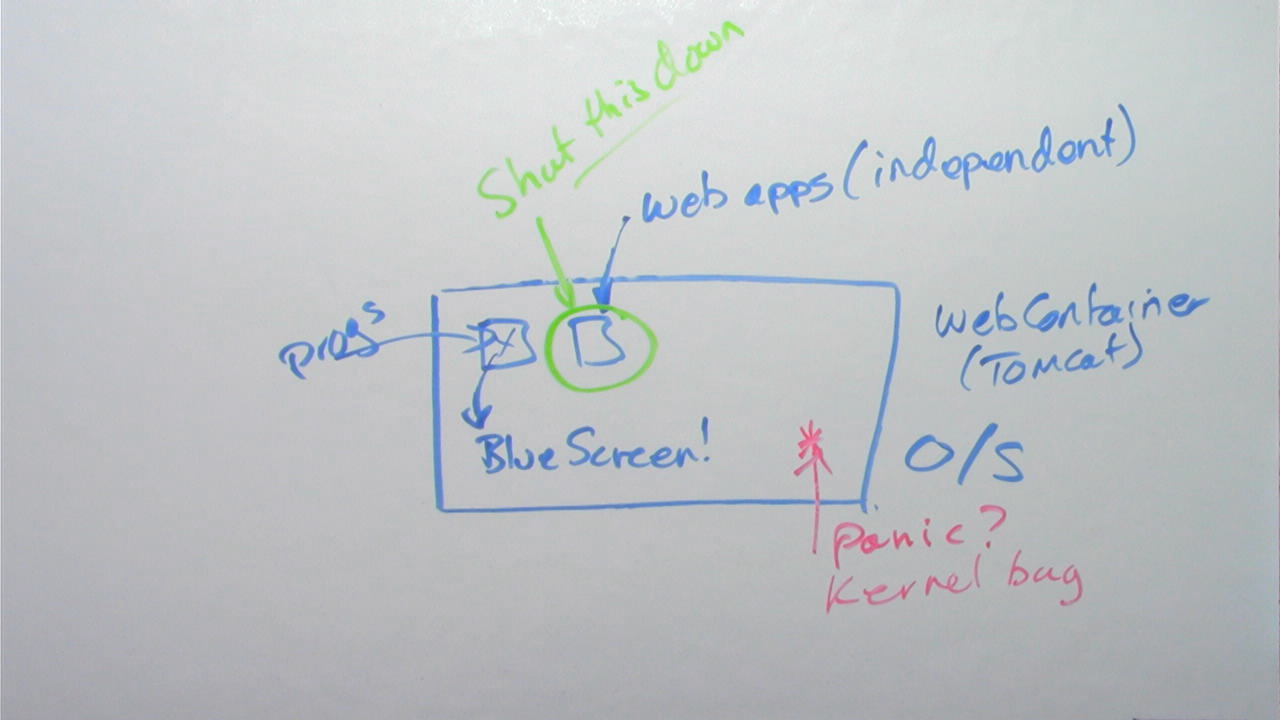 Shut this down
web apps (independent)
progs
Web Container
(Tomcat)
Blue Screen!
O/S
panic?
Kernel bug